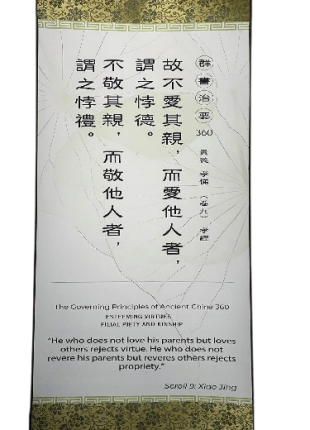 群書治要360 孝悌 （卷九） 孝經
故不愛其親，而愛他人者，
謂之悖德。
不敬其親，而敬他人者，
謂之悖禮。
The Governing Principles of Ancient China 360
ESTEEMING VIRTUES,
FILIAL PIETY AND KINSHIP
"He who does not love his parents but loves
others rejects virtue. He who does not
revere his parents but reveres others rejects
propriety."
Scroll 9: Xiao Jing